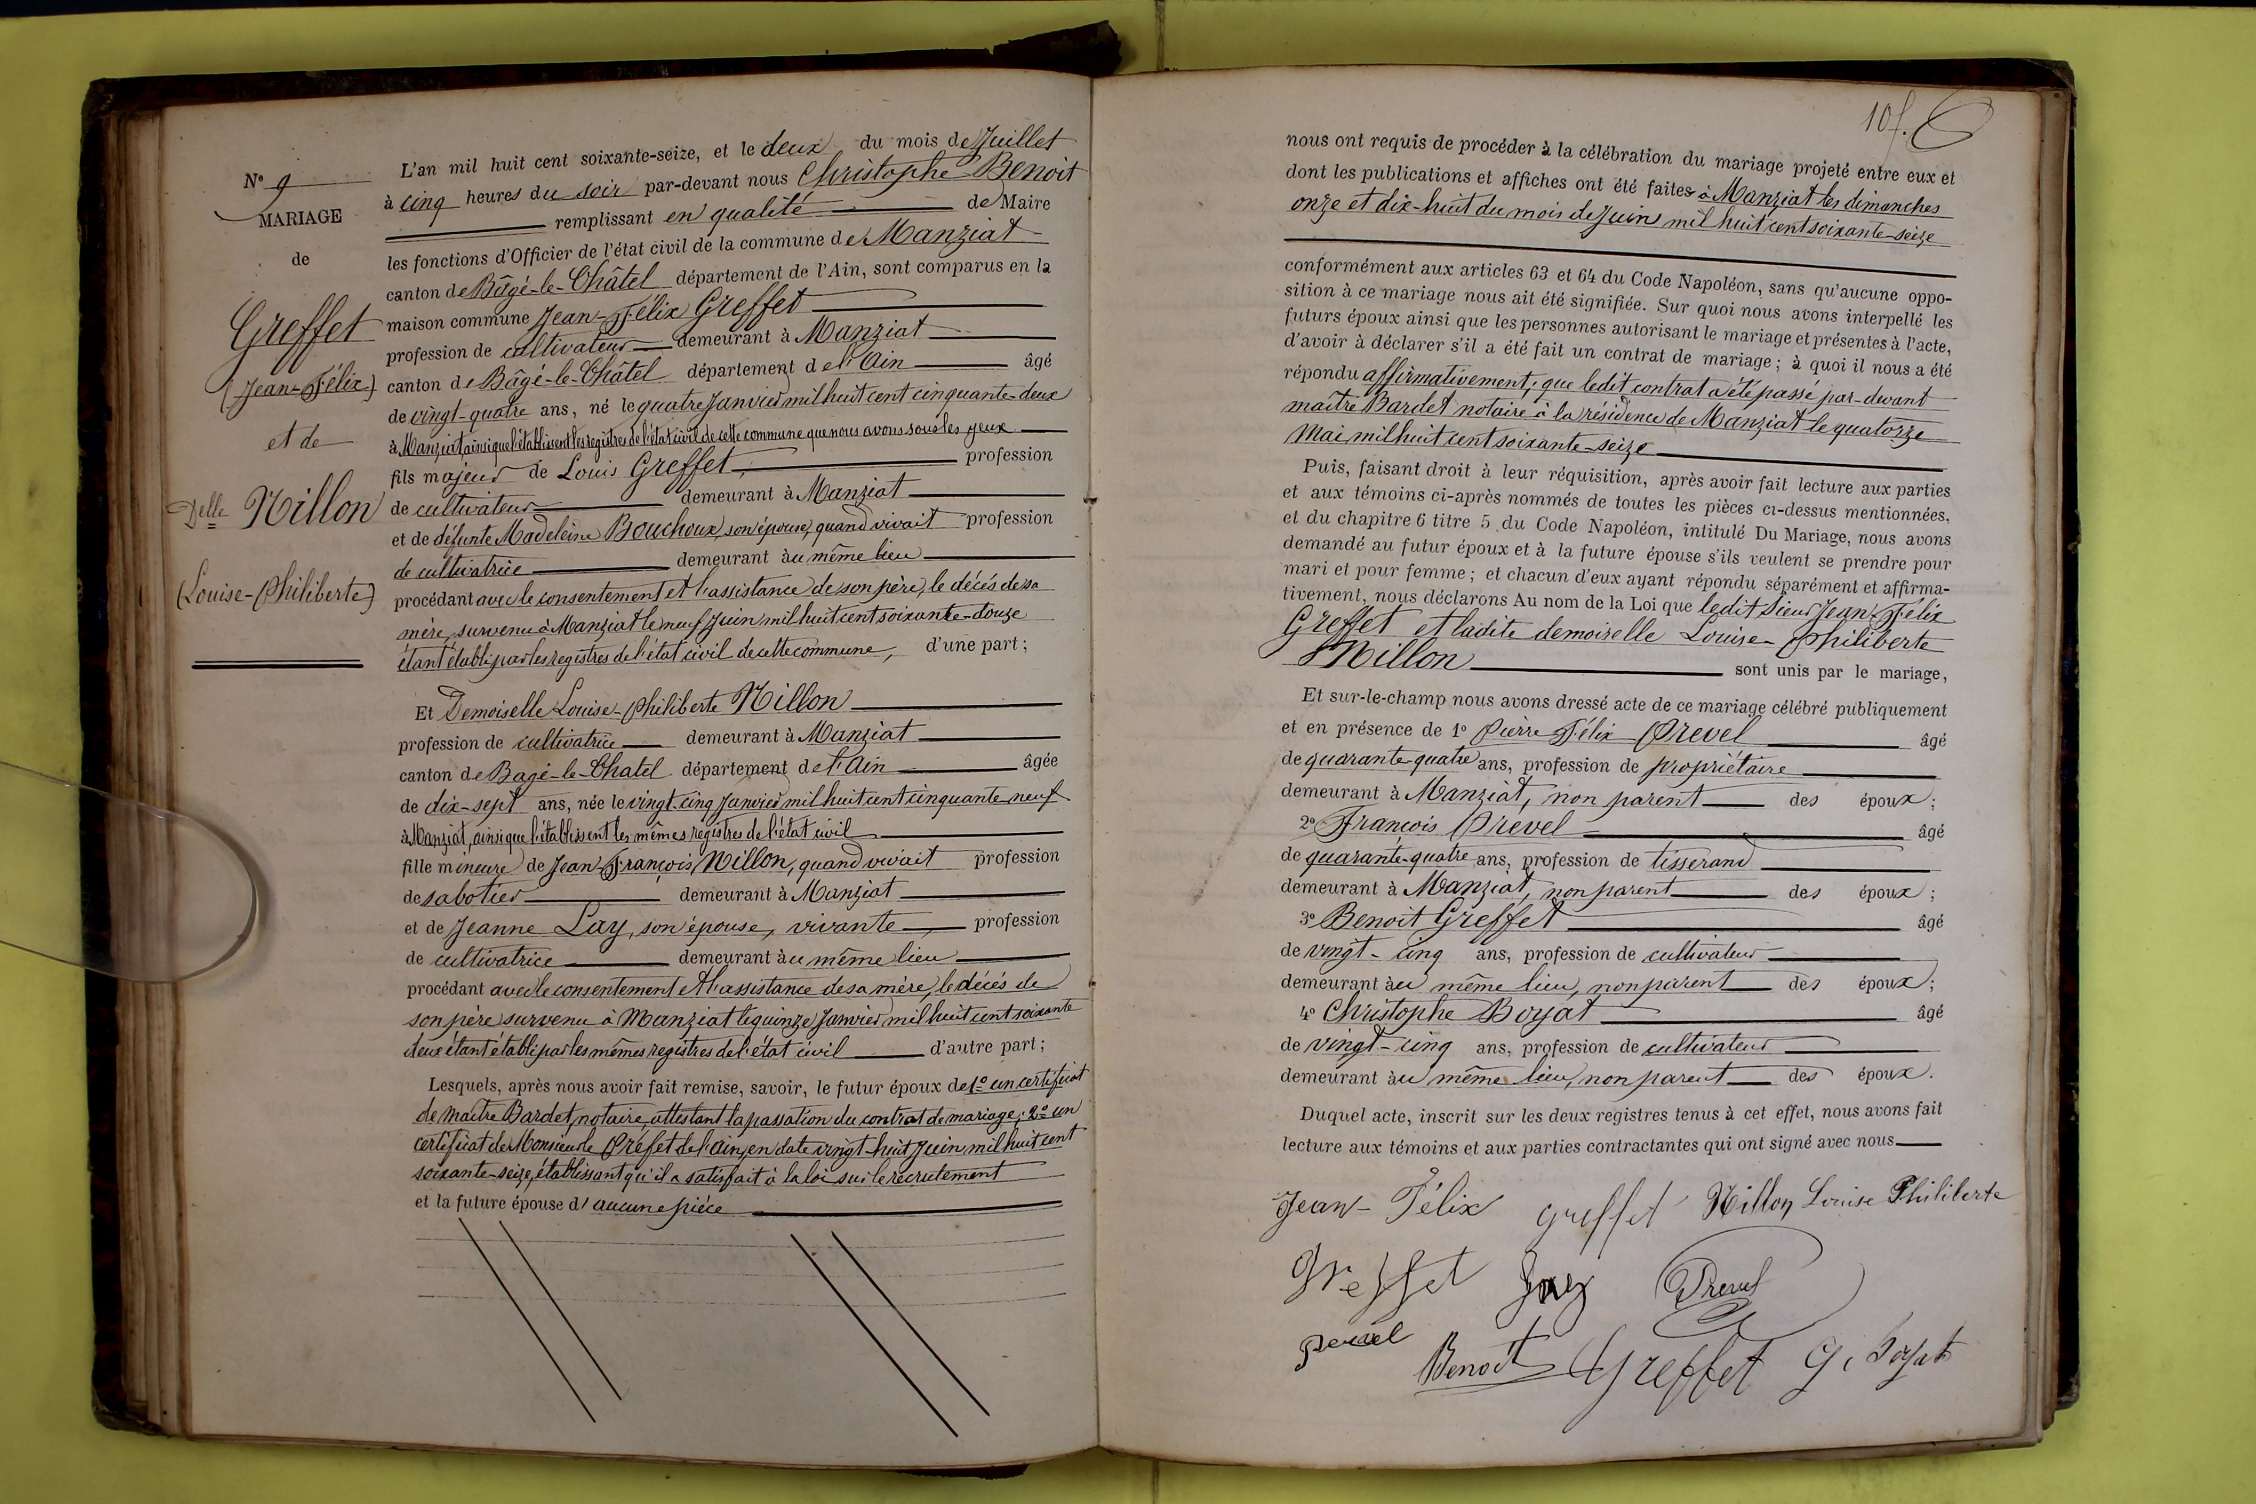 N° 9
MARIAGE
de
Greffet
(Jean-Félix)
et de
Delle Nillon
(Louise-Philiberte)
L'an mil huit cent soixante-seize, et le deux du mois de Juillet
à cinq heures du soir par-devant nous Christophe Benoit
remplissant en qualité de Maire
les fonctions d'Officier de l'état civil de la commune de Manziat
canton de Bâgé-le-Châtel département de l'Ain, sont comparus en la
maison commune Jean-Félix Greffet
profession de cultivateur demeurant à Manziat
canton de Bâgé-le-Châtel département de l'Ain âgé
de vingt-quatre ans, né le quatre Janvier mil huit cent cinquante-deux
à Manziat ainsi que l'établissent les registres de l'état civil de cette commune que nous avons sous les yeux
fils majeur de Louis Greffet, profession
de cultivateur demeurant à Manziat
et de défunte Madeleine Bouchoux, son épouse, quand vivait profession
de cultivatrice demeurant au même lieu
procédant avec le consentement et l'assistance de son père, le décés de sa
mère, survenu à Manziat le neuf Juin mil huit cent soixante-douze
étant établi par les registres de l'état civil de cette commune, d'une part;
Et Demoiselle Louise-Philiberte Nillon
profession de cultivatrice demeurant à Manziat
canton de Bagé-le-Chatel département de l'Ain âgée
de dix-sept ans, née le vingt-cinq Janvier mil huit cent cinquante-neuf
à Manziat, ainsi que l'établissent les mêmes registres de l'état civil
fille mineure de Jean-François Nillon, quand vivait profession
de sabotier demeurant à Manziat
et de Jeanne Lay, son épouse, vivante, profession
de cultivatrice demeurant au même lieu
procédant avec le consentement et l'assistance de sa mère, le décés de
son père survenu à Manziat le quinze Janvier mil huit cent soixante
deux étant établi par les mêmes registres de l'état civil d'autre part;
Lesquels, après nous avoir fait remise, savoir, le futur époux de 1° un certificat
de maître Bardet, notaire, attestant la passation du contrat de mariage; 2° un
certificat de Monsieur le Préfet de l'Ain, en date vingt-huit Juin mil huit cent
soixante-seize, établissant qu'il a satisfait à la loi sur le recrutement
et la future épouse d'aucune pièce
10 f.
nous ont requis de procéder à la célébration du mariage projeté entre eux et
dont les publications et affiches ont été faites à Manziat les dimanches
onze et dix-huit du mois de Juin mil huit cent soixante-seize
conformément aux articles 63 et 64 du Code Napoléon, sans qu'aucune oppo-
sition à ce mariage nous ait été signifiée. Sur quoi nous avons interpellé les
futurs époux ainsi que les personnes autorisant le mariage et présentes à l'acte,
d'avoir à déclarer s'il a été fait un contrat de mariage; à quoi il nous a été
répondu affirmativement, que ledit contrat a été passé par-devant
maître Bardet notaire à la résidence de Manziat le quatorze
Mai mil huit cent soixante-seize
Puis, faisant droit à leur réquisition, après avoir fait lecture aux parties
et aux témoins ci-après nommés de toutes les pièces ci-dessus mentionnées,
et du chapitre 6 titre 5 du Code Napoléon, intitulé Du Mariage, nous avons
demandé au futur époux et à la future épouse s'ils veulent se prendre pour
mari et pour femme; et chacun d'eux ayant répondu séparément et affirma-
tivement, nous déclarons Au nom de la Loi que ledit Sieur Jean-Félix
Greffet et ladite demoiselle Louise-Philiberte
Nillon sont unis par le mariage,
Et sur-le-champ nous avons dressé acte de ce mariage célébré publiquement
et en présence de 1° Pierre Félix Prevel âgé
de quarante-quatre ans, profession de propriétaire
demeurant à Manziat, non parent des époux;
2° François Prevel âgé
de quarante-quatre ans, profession de tisserand
demeurant à Manziat, non parent des époux;
3° Benoit Greffet âgé
de vingt-cinq ans, profession de cultivateur
demeurant au même lieu, non parent des époux;
4° Christophe Boyat âgé
de vingt-cinq ans, profession de cultivateur
demeurant au même lieu, non parent des époux.
Duquel acte, inscrit sur les deux registres tenus à cet effet, nous avons fait
lecture aux témoins et aux parties contractantes qui ont signé avec nous
Jean-Félix greffet Nillon Louise Philiberte
Greffet Prevel
Benoit Greffet Boyat